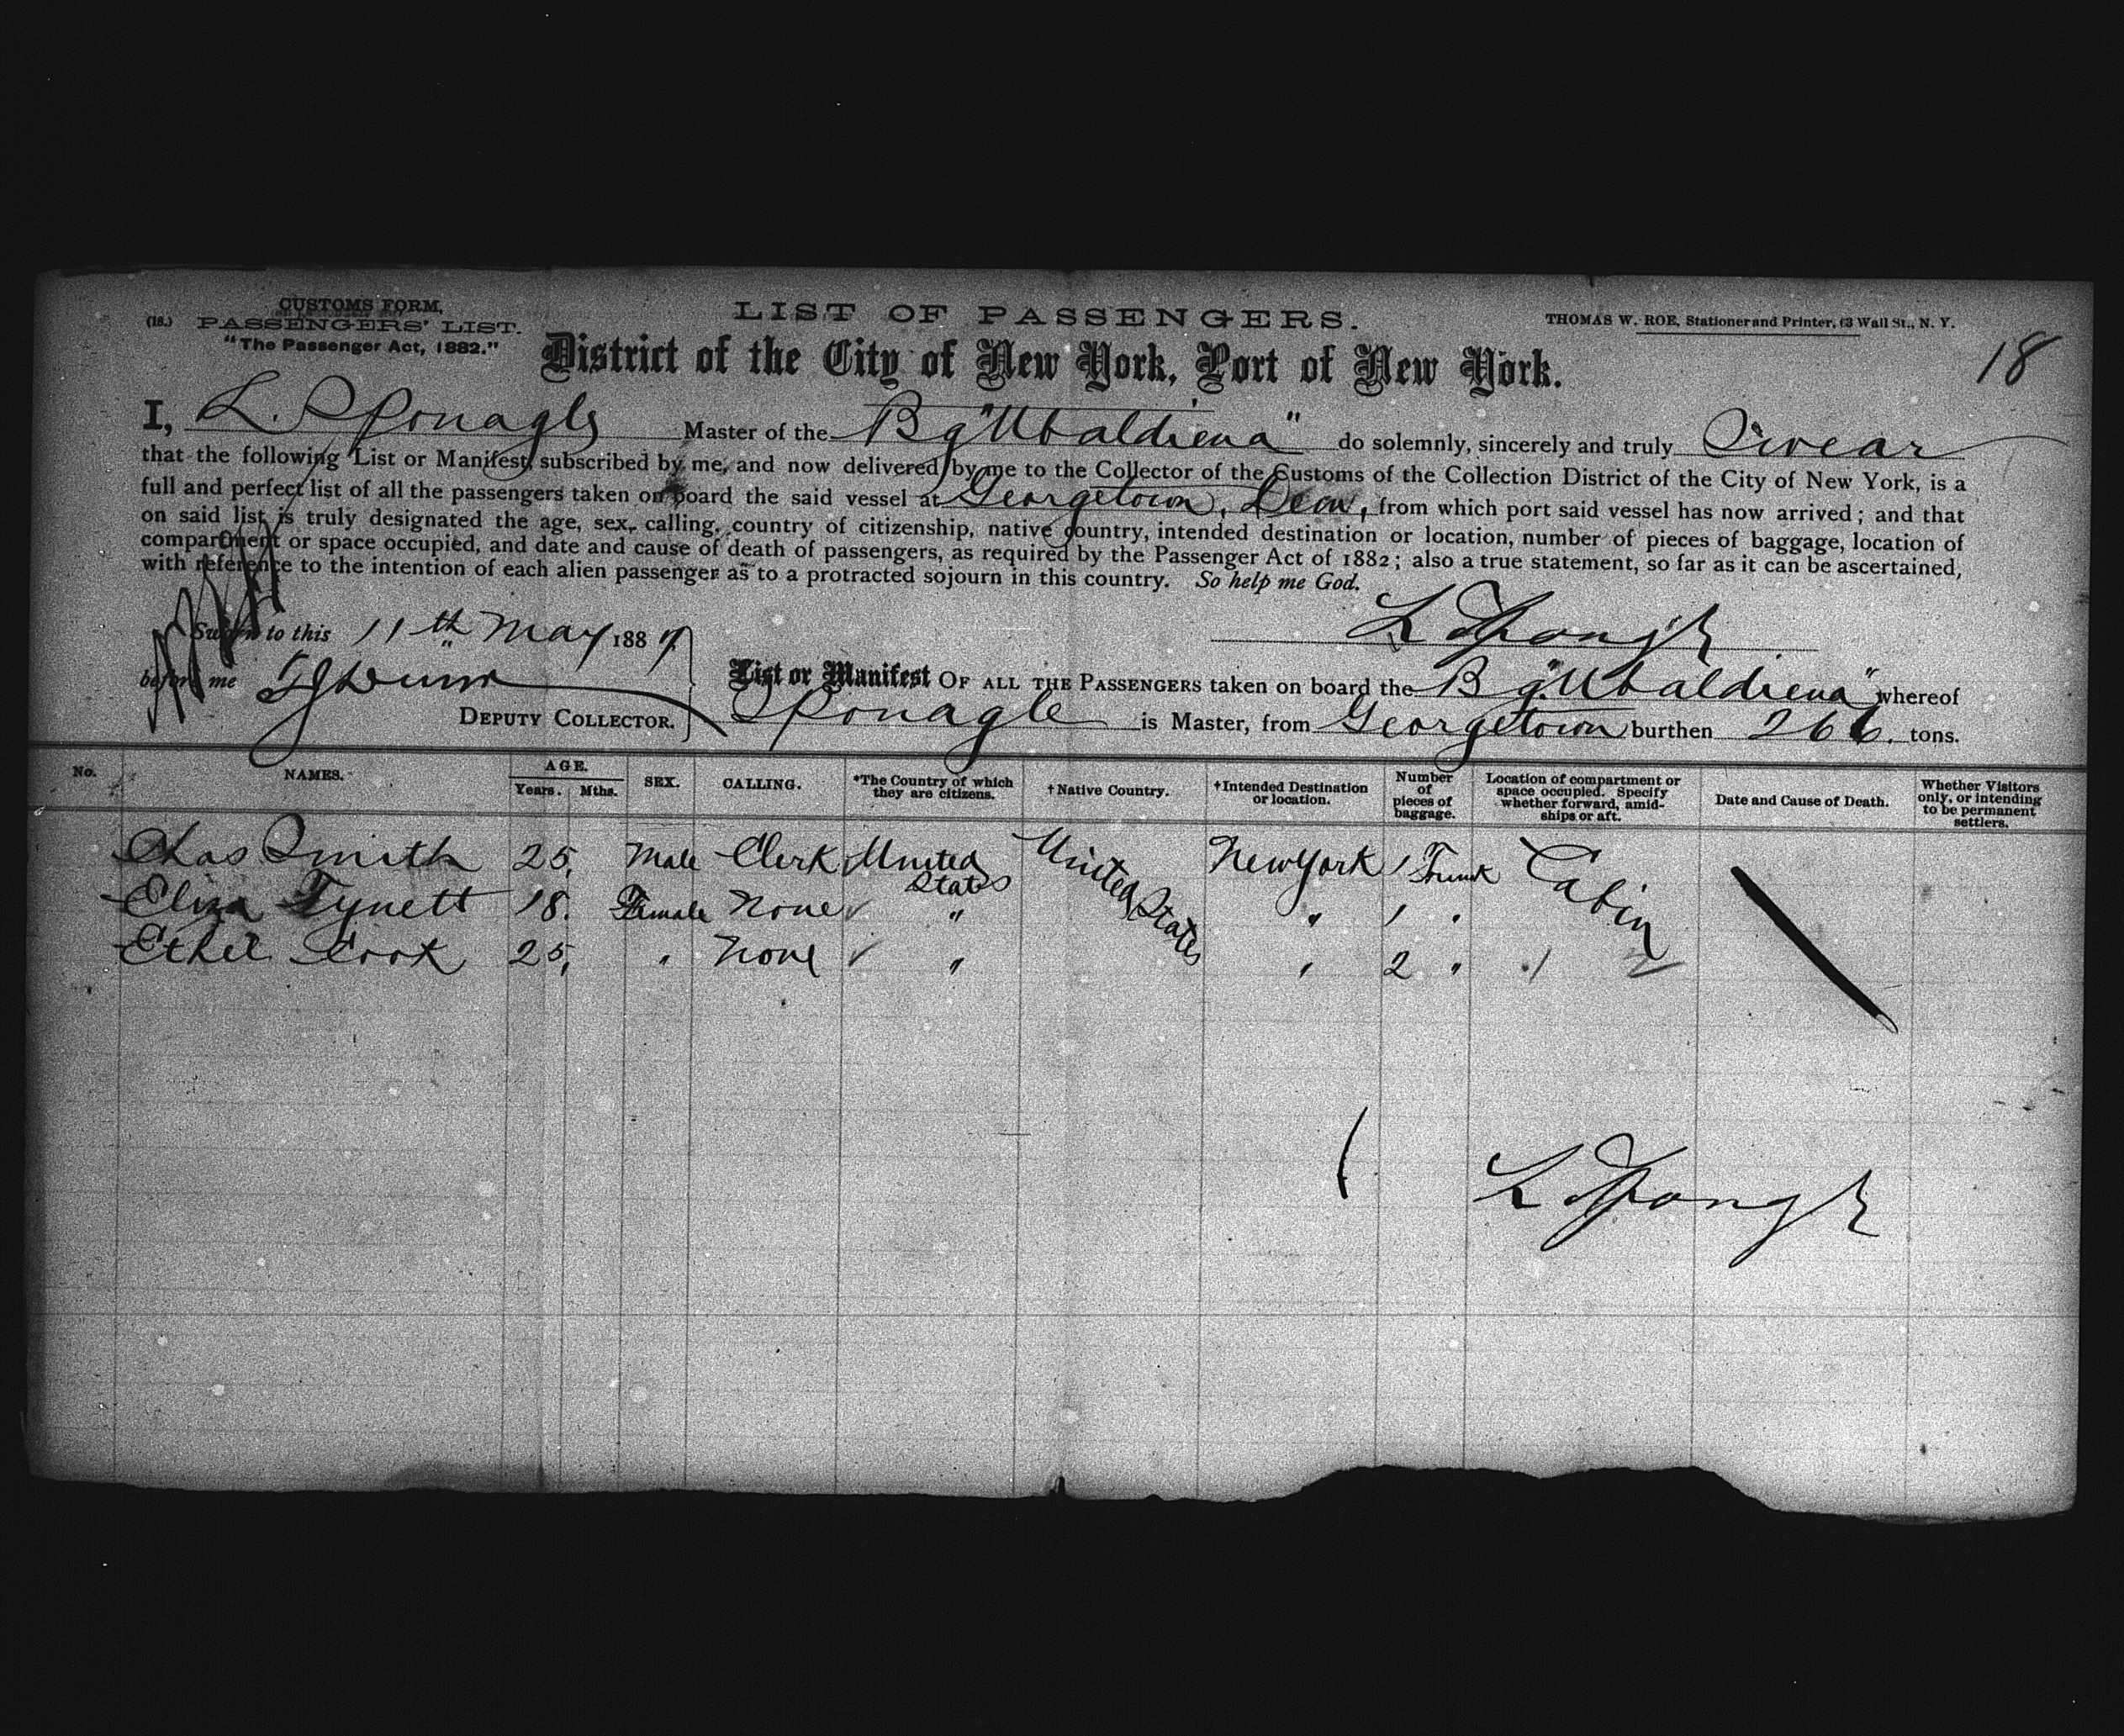 CUSTOMS FORM,
(18.) PASSENGERS' LIST.
"The Passenger Act, 1882."
LIST OF PASSENGERS.
THOMAS W. ROE, Stationer and Printer, 63 Wall St., N. Y.
District of the City of New York, Port of New York.
18
I, L. Sponagle Master of the Bg "Ubaldiena" do solemnly, sincerely and truly Swear
that the following List or Manifest, subscribed by me, and now delivered by me to the Collector of the Customs of the Collection District of the City of New York, is a
full and perfect list of all the passengers taken on board the said vessel at Georgetown, Dem, from which port said vessel has now arrived; and that
on said list is truly designated the age, sex, calling, country of citizenship, native country, intended destination or location, number of pieces of baggage, location of
compartment or space occupied, and date and cause of death of passengers, as required by the Passenger Act of 1882; also a true statement, so far as it can be ascertained,
with reference to the intention of each alien passenger as to a protracted sojourn in this country. So help me God.
Sworn to this 11th May 1887
L Spongle
before me
DEPUTY COLLECTOR.
List or Manifest OF ALL THE PASSENGERS taken on board the Bg "Ubaldiena" whereof
Sponagle is Master, from Georgetown burthen 266. tons.
No. NAMES. AGE. Years. Mths. SEX. CALLING. *The Country of which they are citizens. †Native Country. †Intended Destination or location. Number of pieces of baggage. Location of compartment or space occupied. Specify whether forward, amidships or aft. Date and Cause of Death. Whether Visitors only, or intending to be permanent settlers.
Chas Smith 25, Male Clerk United States United States New York 1 Trunk Cabin
Eliza Tynett 18. Female None " " 1 "
Ethel Cook 25, " None " " 2 "
L Spongle